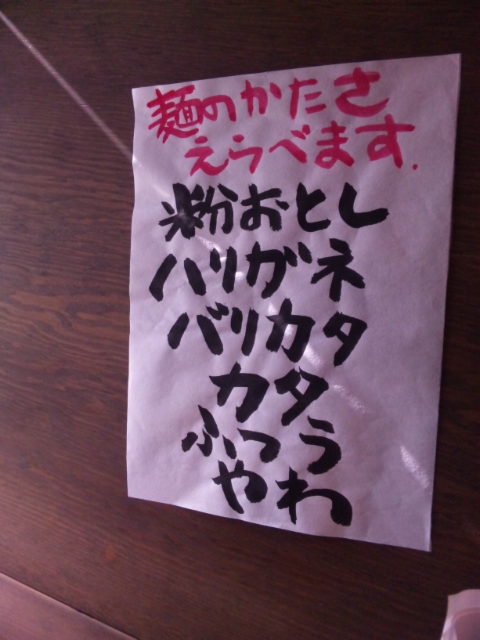 麺のかたさ
えらべます.
粉おとし
ハリガネ
バリカタ
カタ
ふつう
やわ